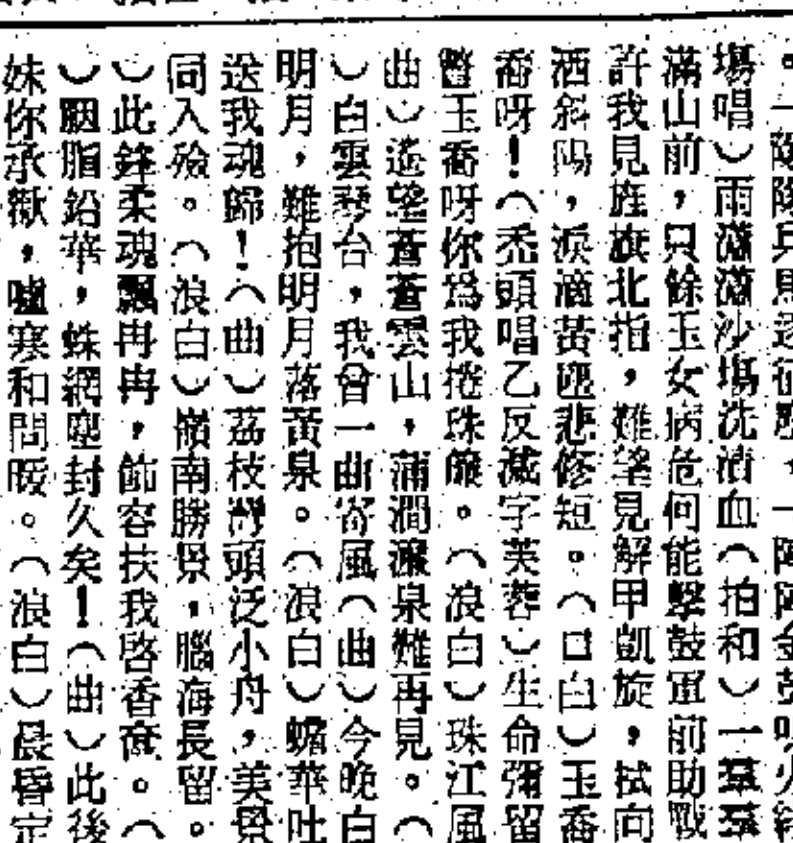 。一隊隊兵馬逐征塵,一陣陣金鼓鳴火
塲唱)雨瀟瀟沙塲洗漬血(拍和)一羣羣
滿山前,只餘玉女病危何能擊鼓軍前助戰
許我見旌旗北指,難望見解甲凱旋,拭向
洒斜陽,淚滴黃壚悲修短。(口白)玉喬
喬呀!(禿頭唱乙反減字芙蓉)生命彌留
瞥玉喬呀你爲我捲珠簾。(浪白)珠江風
曲)遙望蒼蒼雲山,蒲澗濂泉難再見。(
)白雲琴台,我曾一曲寄風(曲)今晚白
明月,難抱明月落黃泉。(浪白)蟾華吐
送我魂歸!(曲)荔枝灣頭泛小舟,美景
同入殮。(浪白)嶺南勝景,腦海長留。
)此鋒柔魂飄冉冉,飾容扶我啓香奩。(
)胭脂鉛華,蛛網塵封久矣!(曲)此後
妹你承歡,噓寒和問暖。(浪白)晨昏定